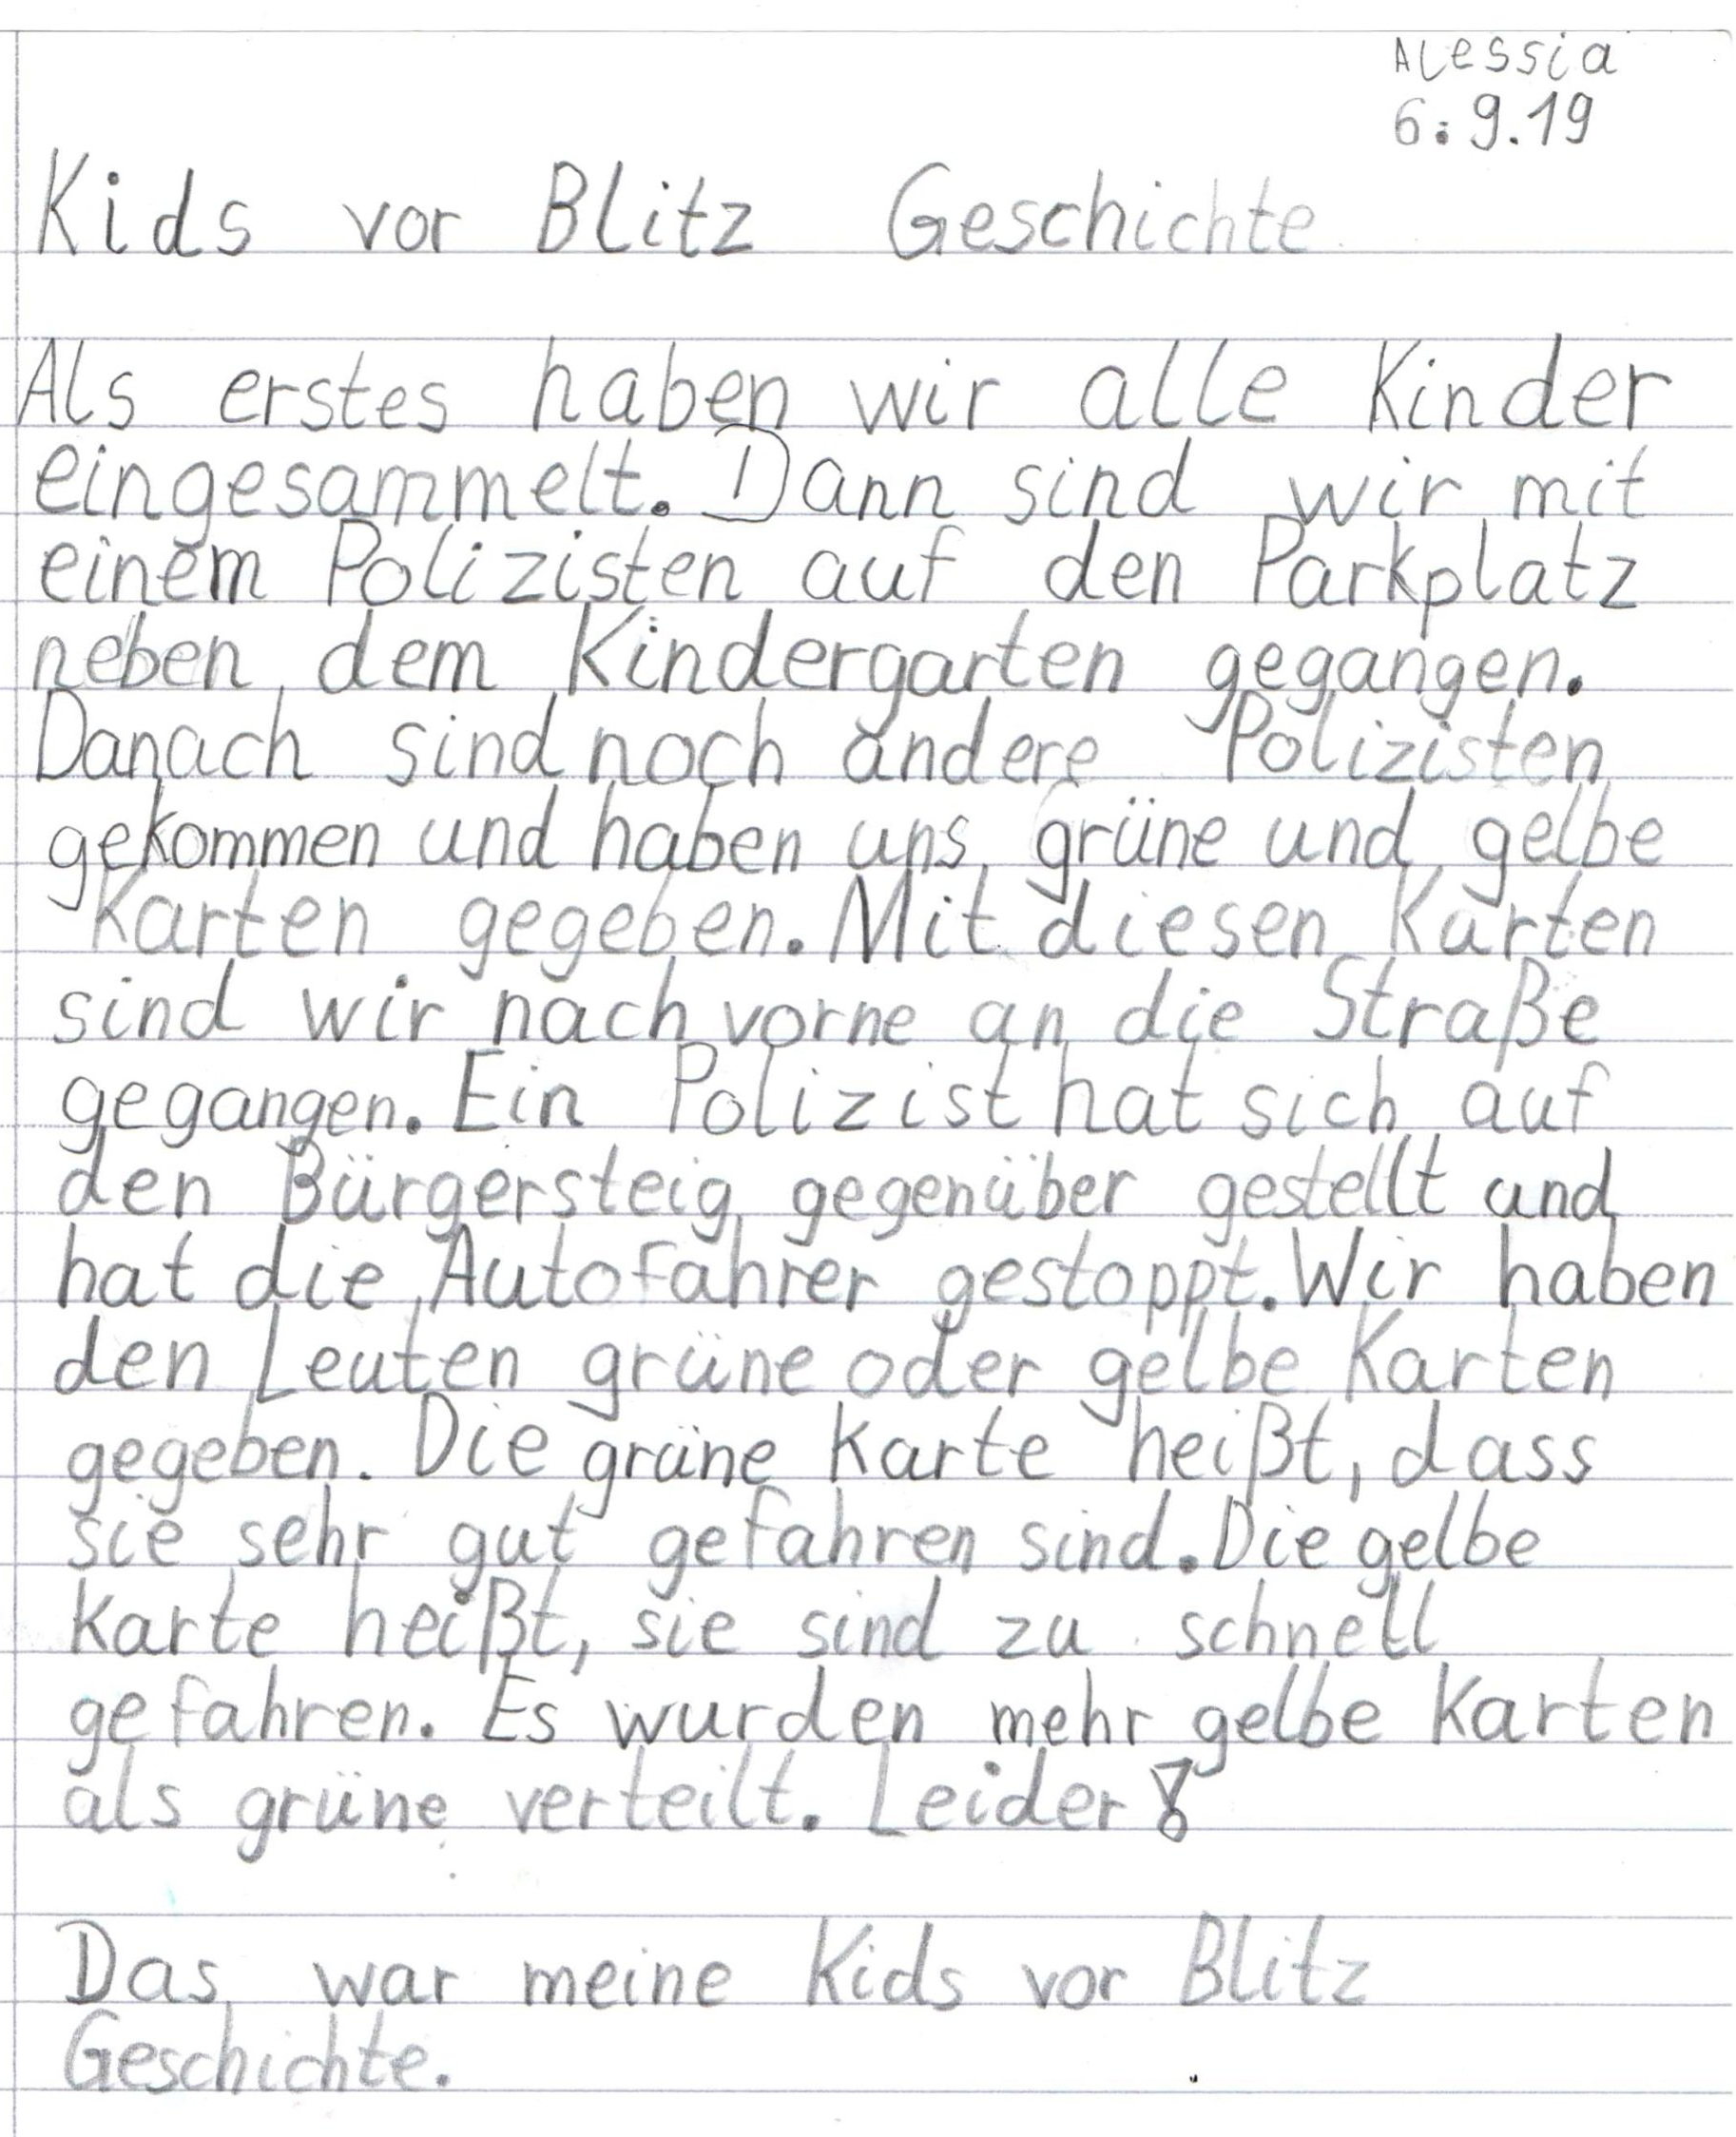 Alessia
6.9.19
Kids vor Blitz Geschichte
Als erstes haben wir alle Kinder
eingesammelt. Dann sind wir mit
einem Polizisten auf den Parkplatz
neben dem Kindergarten gegangen.
Danach sind noch andere Polizisten
gekommen und haben uns grüne und gelbe
Karten gegeben. Mit diesen Karten
sind wir nach vorne an die Straße
gegangen. Ein Polizist hat sich auf
den Bürgersteig gegenüber gestellt und
hat die Autofahrer gestoppt. Wir haben
den Leuten grüne oder gelbe Karten
gegeben. Die grüne Karte heißt, dass
sie sehr gut gefahren sind. Die gelbe
Karte heißt, sie sind zu schnell
gefahren. Es wurden mehr gelbe Karten
als grüne verteilt. Leider!
Das war meine Kids vor Blitz
Geschichte.